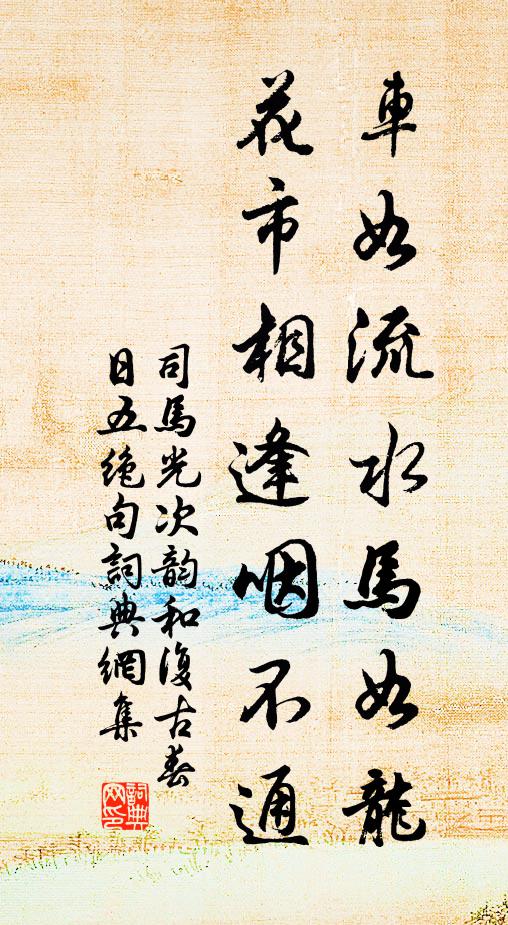 車如流水馬如龍
花市相逢咽不通
司馬光次韵和復古春
日五絶句詞典網集
詞典
网印